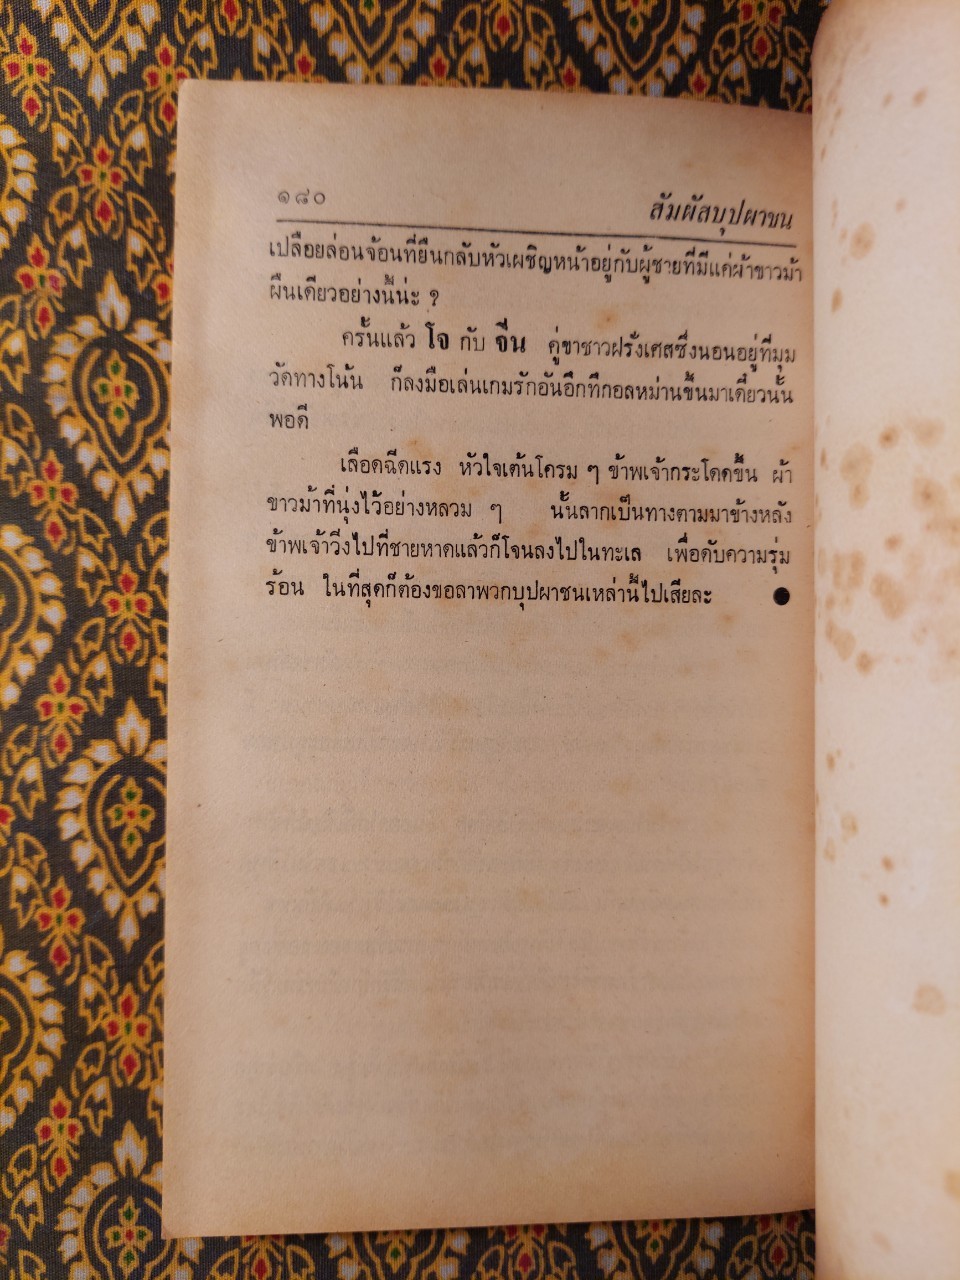 ๑๘๐ สัมผัสบุปผาชน
เปลือยล่อนจ้อนที่ยืนกลับหัวเผชิญหน้าอยู่กับผู้ชายที่มีแค่ผ้าขาวม้า
ผืนเดียวอย่างนี้น่ะ ?
ครั้นแล้ว โจ กับ จีน คู่ขาชาวฝรั่งเศสซึ่งนอนอยู่ที่มุม
วัดทางโน้น ก็ลงมือเล่นเกมรักอันอึกทึกอลหม่านขึ้นมาเดี๋ยวนั้น
พอดี
เลือดฉีดแรง หัวใจเต้นโครม ๆ ข้าพเจ้ากระโดดขึ้น ผ้า
ขาวม้าที่นุ่งไว้อย่างหลวม ๆ นั้นลากเป็นทางตามมาข้างหลัง
ข้าพเจ้าวิ่งไปที่ชายหาดแล้วก็โจนลงไปในทะเล เพื่อดับความรุ่ม
ร้อน ในที่สุดก็ต้องขอลาพวกบุปผาชนเหล่านี้ไปเสียละ ●